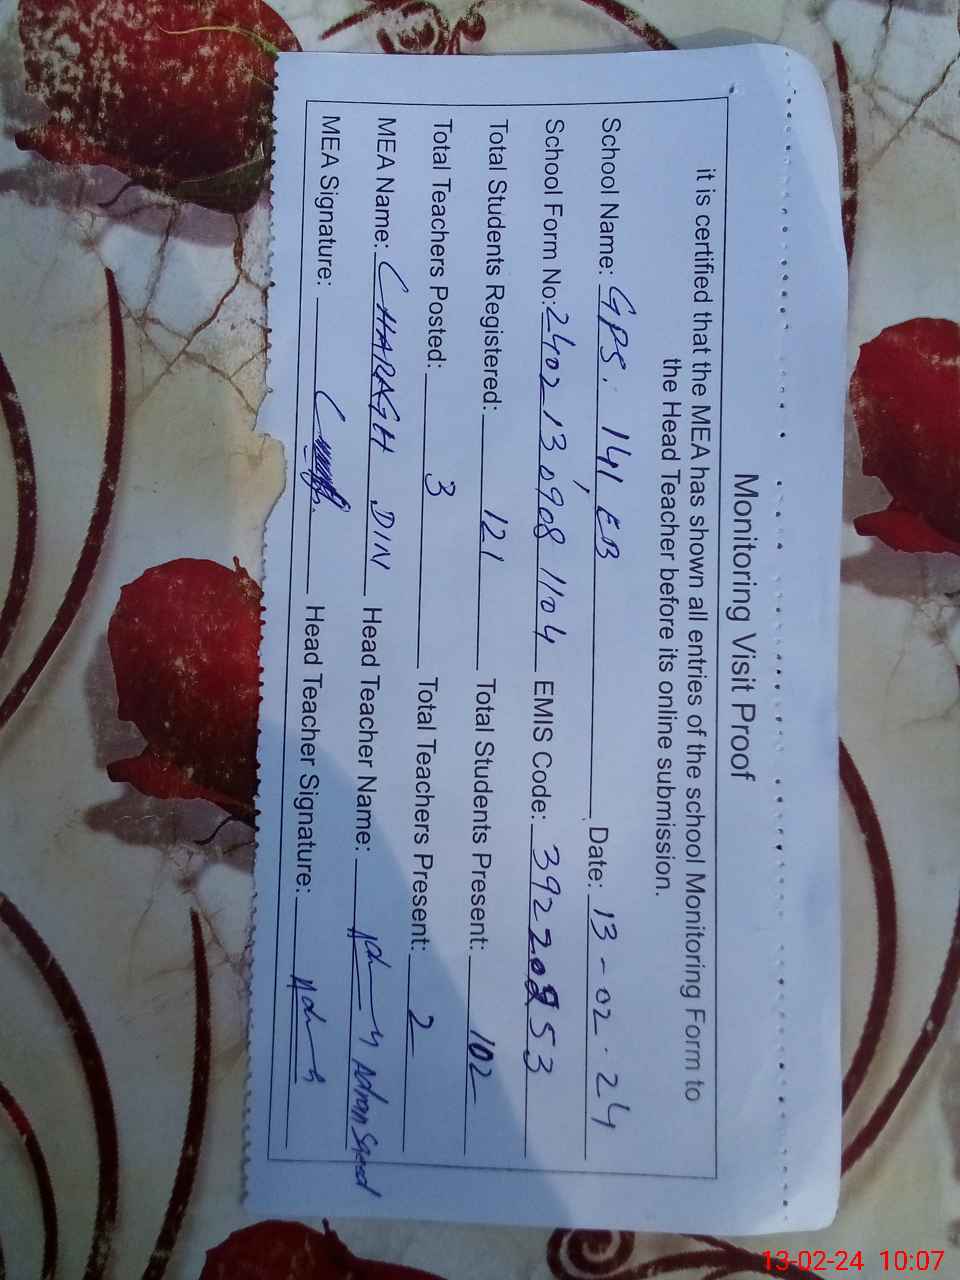 Monitoring Visit Proof
it is certified that the MEA has shown all entries of the school Monitoring Form to
the Head Teacher before its online submission.
School Name: GPS. 141, EB Date: 13-02.24
School Form No: 2402 13 0908 1104 EMIS Code: 392 20 53
Total Students Registered: 121 Total Students Present: 102
Total Teachers Posted: 3 Total Teachers Present: 2
MEA Name: CHARAGH DIN Head Teacher Name:
MEA Signature: Head Teacher Signature:
13-02-24 10:07